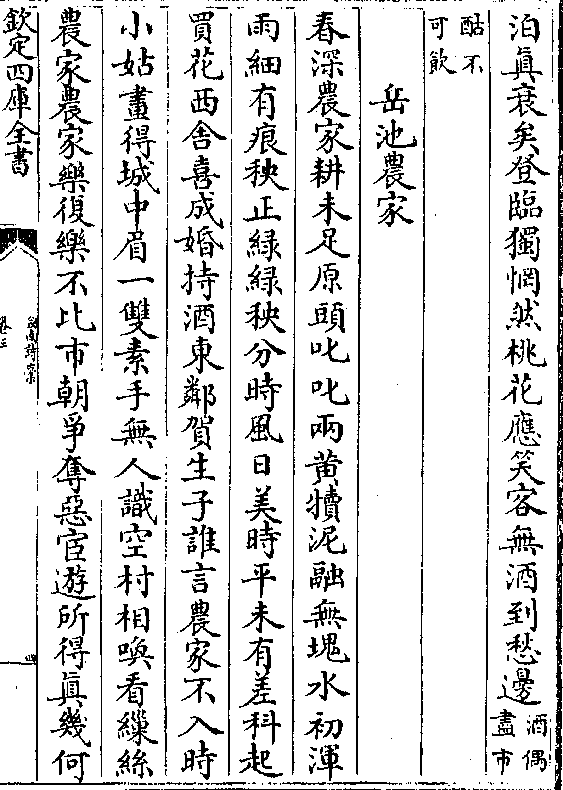 泊眞衰矣登臨獨惘然桃花應笑客無酒到愁邊酒偶盡市
酤不可飲
岳池農家
春深農家耕未足原頭叱叱兩黄犢泥融無塊水初渾
雨細有痕秧正緑緑秧分時風日美時平未有差科起
買花西舎喜成婚持酒東鄰賀生子誰言農家不入時
小姑畫得城中眉一雙素手無人識空村相喚看繅絲
農家農家樂復樂不比市朝爭奪惡宦遊所得眞幾何
欽定四庫全書
劍南詩稾
卷三
四